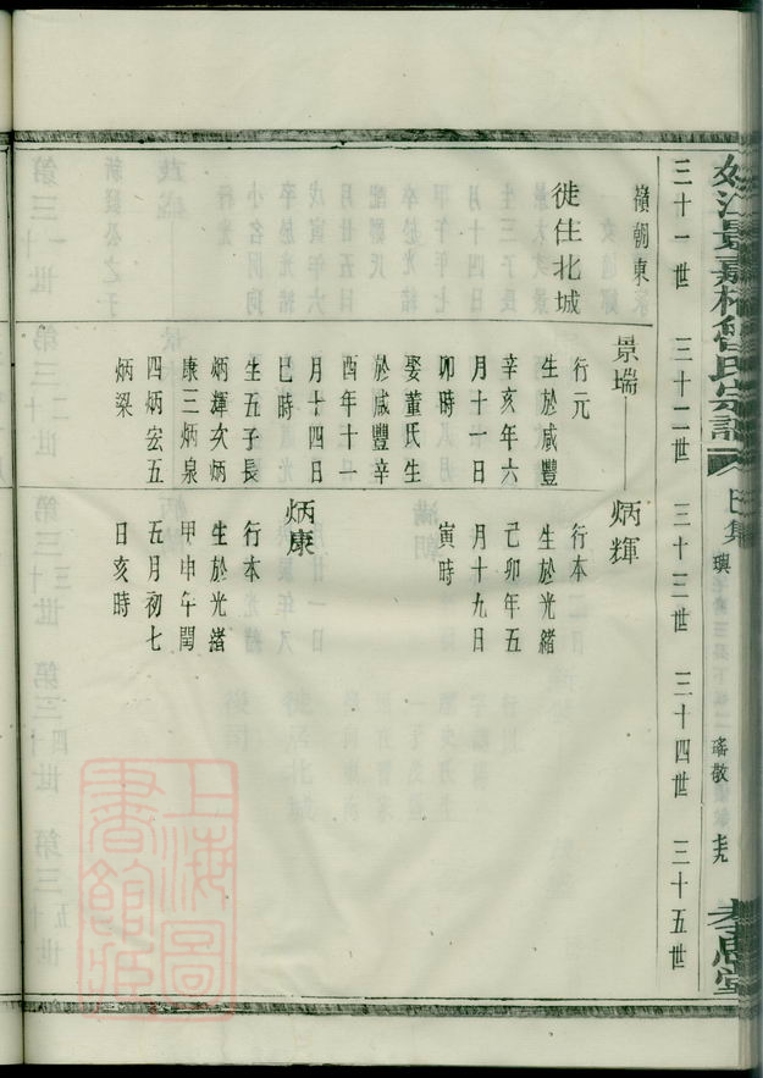 三十一世 三十二世 三十三世 三十四世 三十五世
嶺朝東
徙住北城
景瑞 炳輝
行元
生於咸豐
辛亥年六
月十一日
卯時
娶董氏生
於咸豐辛
酉年十一
月十四日
巳時
生五子長
炳輝次炳
康三炳泉
四炳宏五
炳梁
行本
生於光緒
己卯年五
月十九日
寅時
炳康
行本
生於光緒
甲申午閏
五月初七
日亥時
璵
瑤敬
孝思堂
上海圖
書館藏